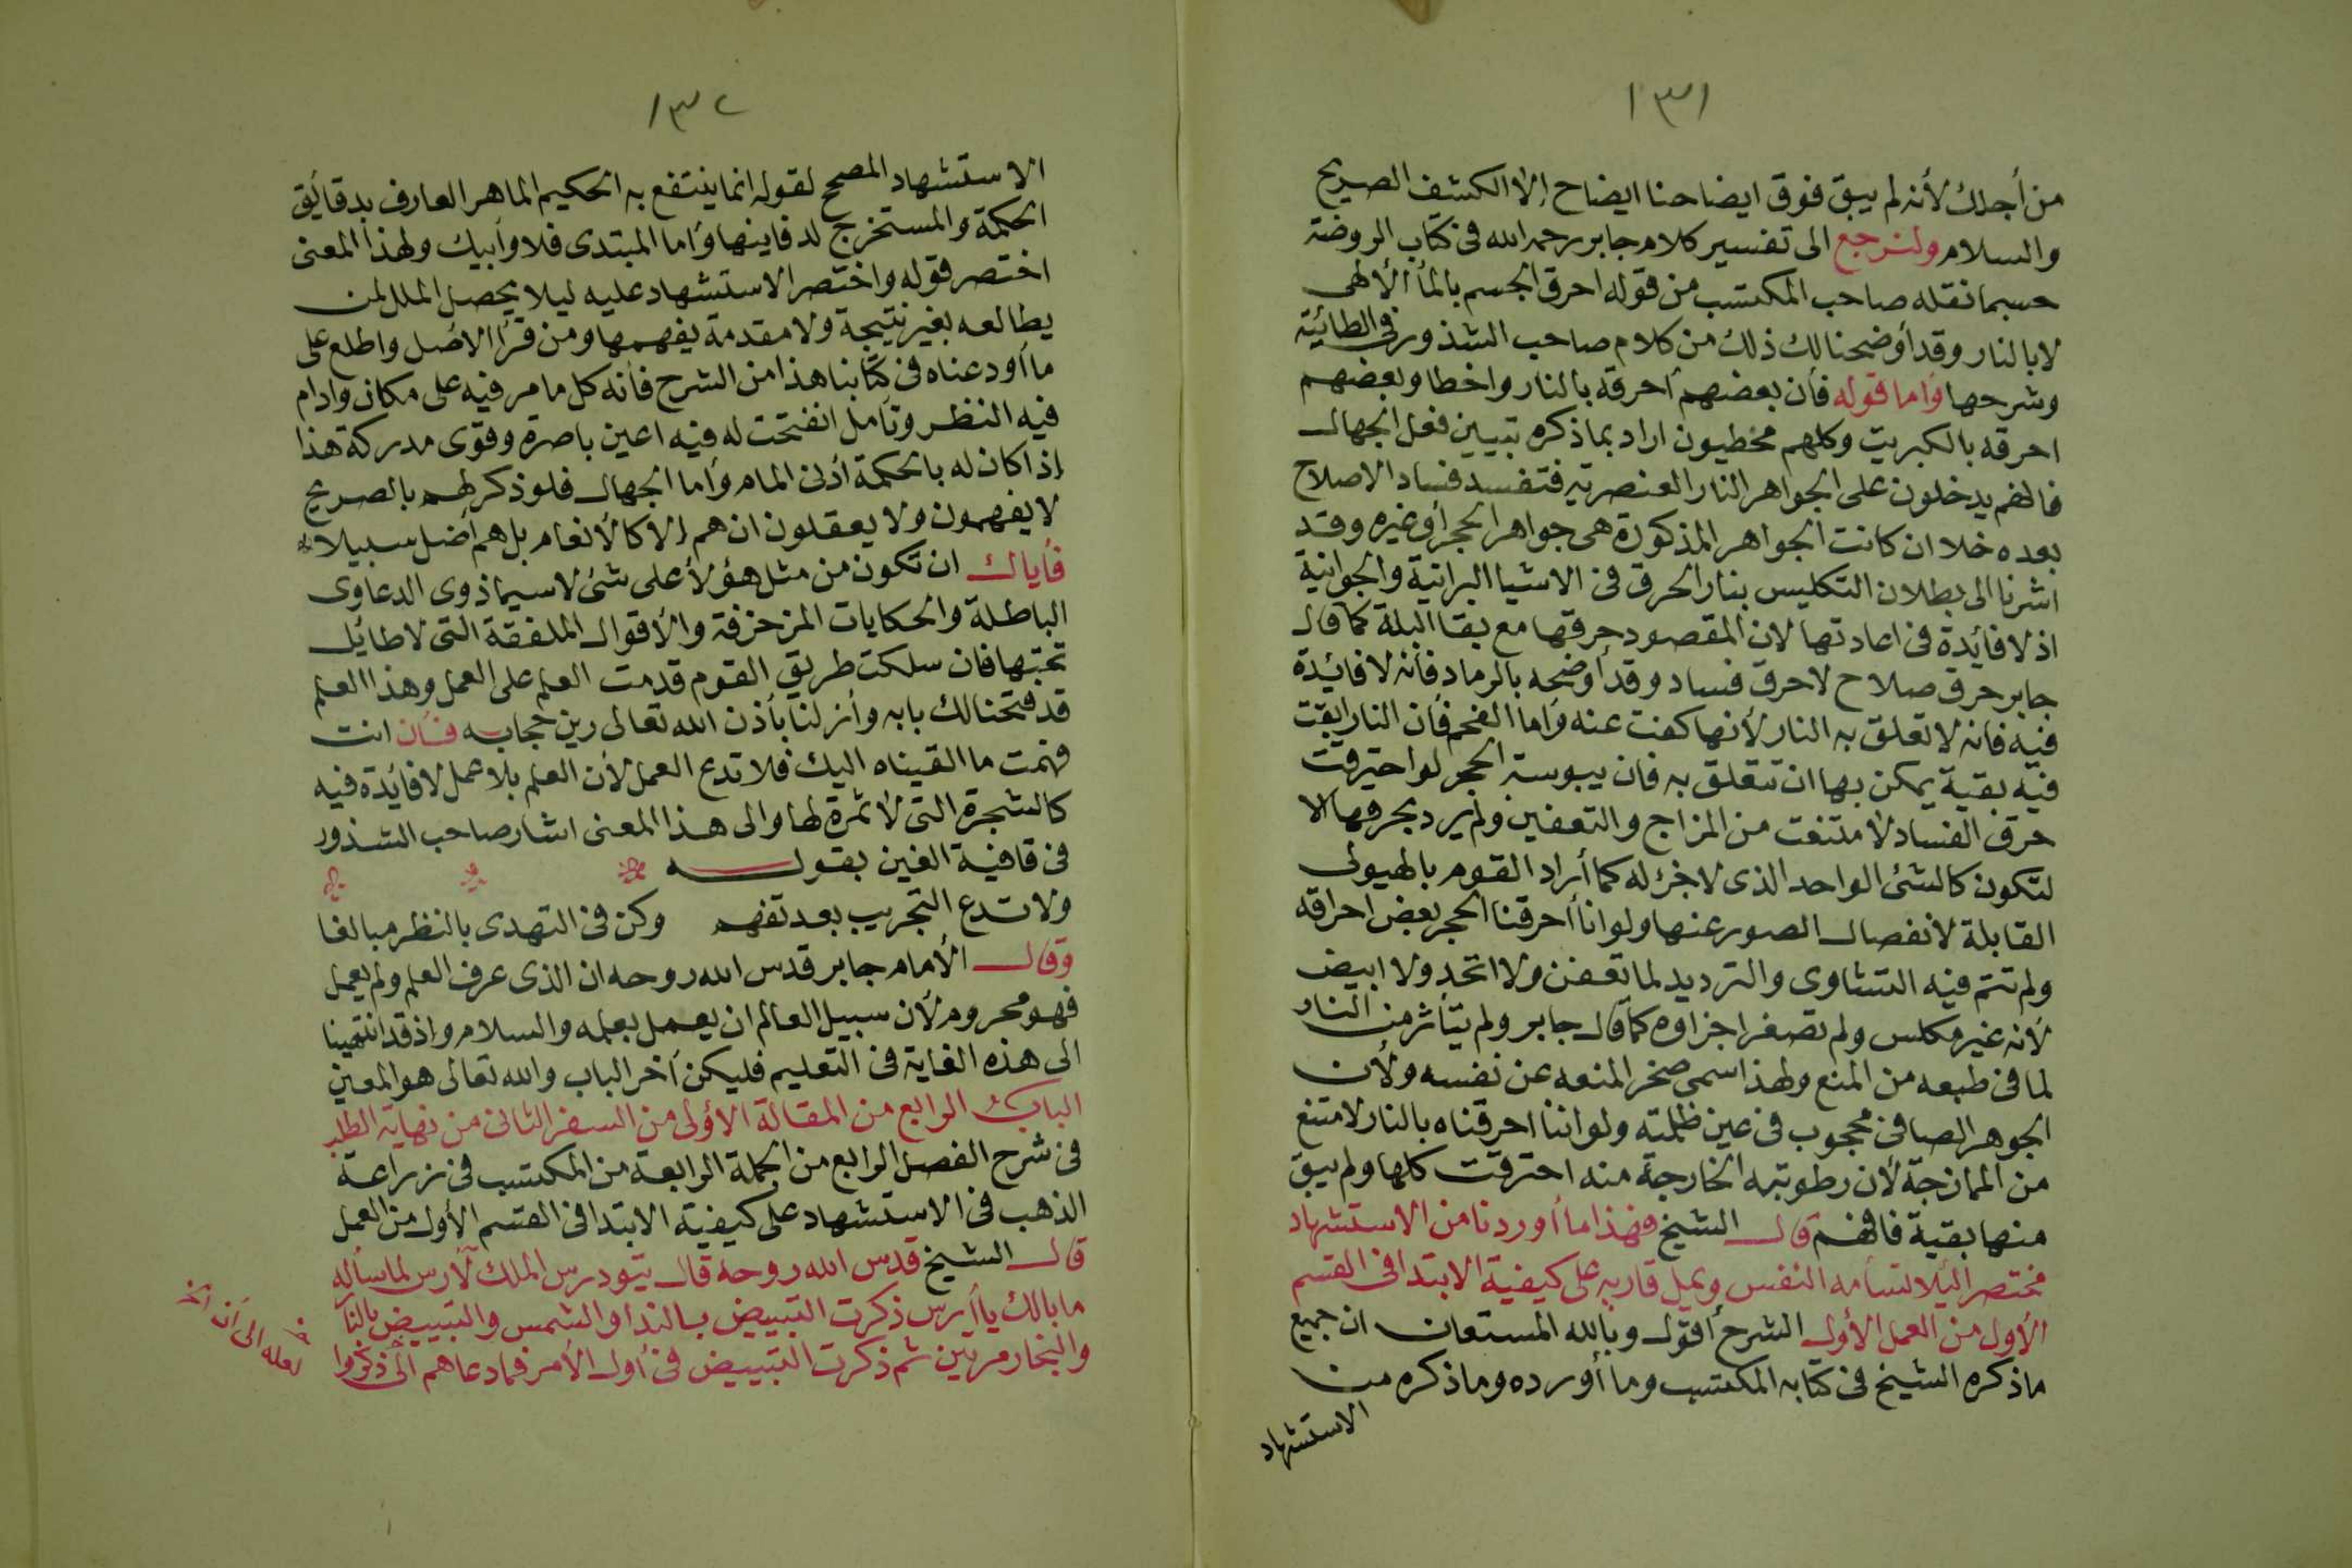 ١٣١
من أجلك لأنه لم يبق فوق ايضاحنا ايضاح إلا الكشف الصريح
والسلام ولنرجع الى تفسير كلام جابر رحمه الله فى كتاب الروضة
حسبما نقله صاحب المكتسب من قوله احرق الجسم بالمأ الألهى
لا بالنار وقد أوضحنا لك ذلك من كلام صاحب الشذور فى الطائية
وشرحها وأما قوله فأن بعضهم أحرقه بالنار واخطا وبعضهم
احرقه بالكبريت وكلهم مخطيون اراد بما ذكره تبيين فعل الجهال
فانهم يدخلون على الجواهر النار العنصرية فتفسد فساد الاصلاح
بعده خلا ان كانت الجواهر المذكورة هى جواهر الحجر أو غيره وقد
اشرنا الى بطلان التكليس بنار الحرق فى الاشيا البرانية والجوانية
اذ لا فائدة فى اعادتها لان المقصود حرقها مع بقا البلة كما قال
جابر حرق صلاح لا حرق فساد وقد أوضحه بالرماد فأنه لا فائدة
فيه فانه لا تعلق به النار لأنها كفت عنه وأما الفحم فأن النار ابقت
فيه بقية يمكن بها ان تتعلق به فان يبوسة الحجر لو احترقت
حرق الفساد لامتنعت من المزاج والتعفين ولم يرد بحرقها الا
لتكون كالشئ الواحد الذى لا جزء له كما أراد القوم بالهيولى
القابلة لانفصال الصور عنها ولو انا أحرقنا الحجر بعض احراقه
ولم تتم فيه التشاوى والترديد لما تعفن ولا اتحد ولا ابيض
لأنه غير مكلس ولم تصغر اجزاوه كما قال جابر ولم يتأثر من النار
لما فى طبعه من المنع ولهذا سمى صخر المنعه عن نفسه ولأن
الجوهر الصافى محجوب فى عين ظلمته ولو اننا احرقناه بالنار لامتنع
من الممازجة لأن رطوبته الخارجة منه احترقت كلها ولم يبق
منها بقية فافهم قال الشيخ فهذا ما أوردنا من الاستشهاد
مختصرا لئلا تسأمه النفس ويمل قاريه على كيفية الابتدا فى القسم
الأول من العمل الأول الشرح أقول وبالله المستعان ان جميع
ما ذكره الشيخ فى كتابه المكتسب وما أورده وما ذكره من
الاستشهاد
١٣٢
الاستشهاد المصحح لقوله انما ينتفع به الحكيم الماهر العارف بدقائق
الحكمة والمستخرج لدفاينها وأما المبتدى فلا وأبيك ولهذا المعنى
اختصر قوله واختصر الاستشهاد عليه ليلا يحصل الملل لمن
يطالعه بغير نتيجة ولا مقدمة يفهمها ومن قرا الاصل واطلع على
ما أودعناه فى كتابنا هذا من الشرح فأنه كل ما مر فيه على مكان وادام
فيه النظر وتأمل انفتحت له فيه اعين باصرة وقوى مدركة هذا
إذا كان له بالحكمة أدنى المام وأما الجهال فلو ذكر لهم بالصريح
لا يفهمون ولا يعقلون ان هم إلا كالأنعام بل هم أضل سبيلا
فأياك ان تكون من مثل هؤلأ على شئ لا سيما ذوى الدعاوى
الباطلة والحكايات المزخرفة والأقوال الملفقة التى لا طائل
تحتها فان سلكت طريق القوم قدمت العلم على العمل وهذا العلم
قد فتحنا لك بابه وأنزلنا بأذن الله تعالى رين حجابه فأن انت
فهمت ما القيناه اليك فلا تدع العمل لأن العلم بلا عمل لا فائدة فيه
كالشجرة التى لا ثمرة لها والى هذا المعنى اشار صاحب الشذور
فى قافية الغين بقوله
ولا تدع التجريب بعد تفهم وكن فى التهدى بالنظر مبالغا
وقال الأمام جابر قدس الله روحه ان الذى عرف العلم ولم يعمل
فهو محروم لأن سبيل العالم ان يعمل بعلمه والسلام واذ قد انتهينا
الى هذه الغاية فى التعليم فليكن أخر الباب والله تعالى هو المعين
الباب الرابع من المقالة الأولى من السفر الثانى من نهاية الطلب
فى شرح الفصل الرابع من الجملة الرابعة من المكتسب فى زراعة
الذهب فى الاستشهاد على كيفية الابتدا فى القسم الأول من العمل
قال الشيخ قدس الله روحه قال تيودرس الملك لآرس لما سأله
ما بالك يا أرس ذكرت التبييض بالندا والشمس والتبييض بالنار
والبخار مرتين ثم ذكرت التبييض فى أول الأمر فما دعاهم الى ذكروا
لعله الى أن الخ